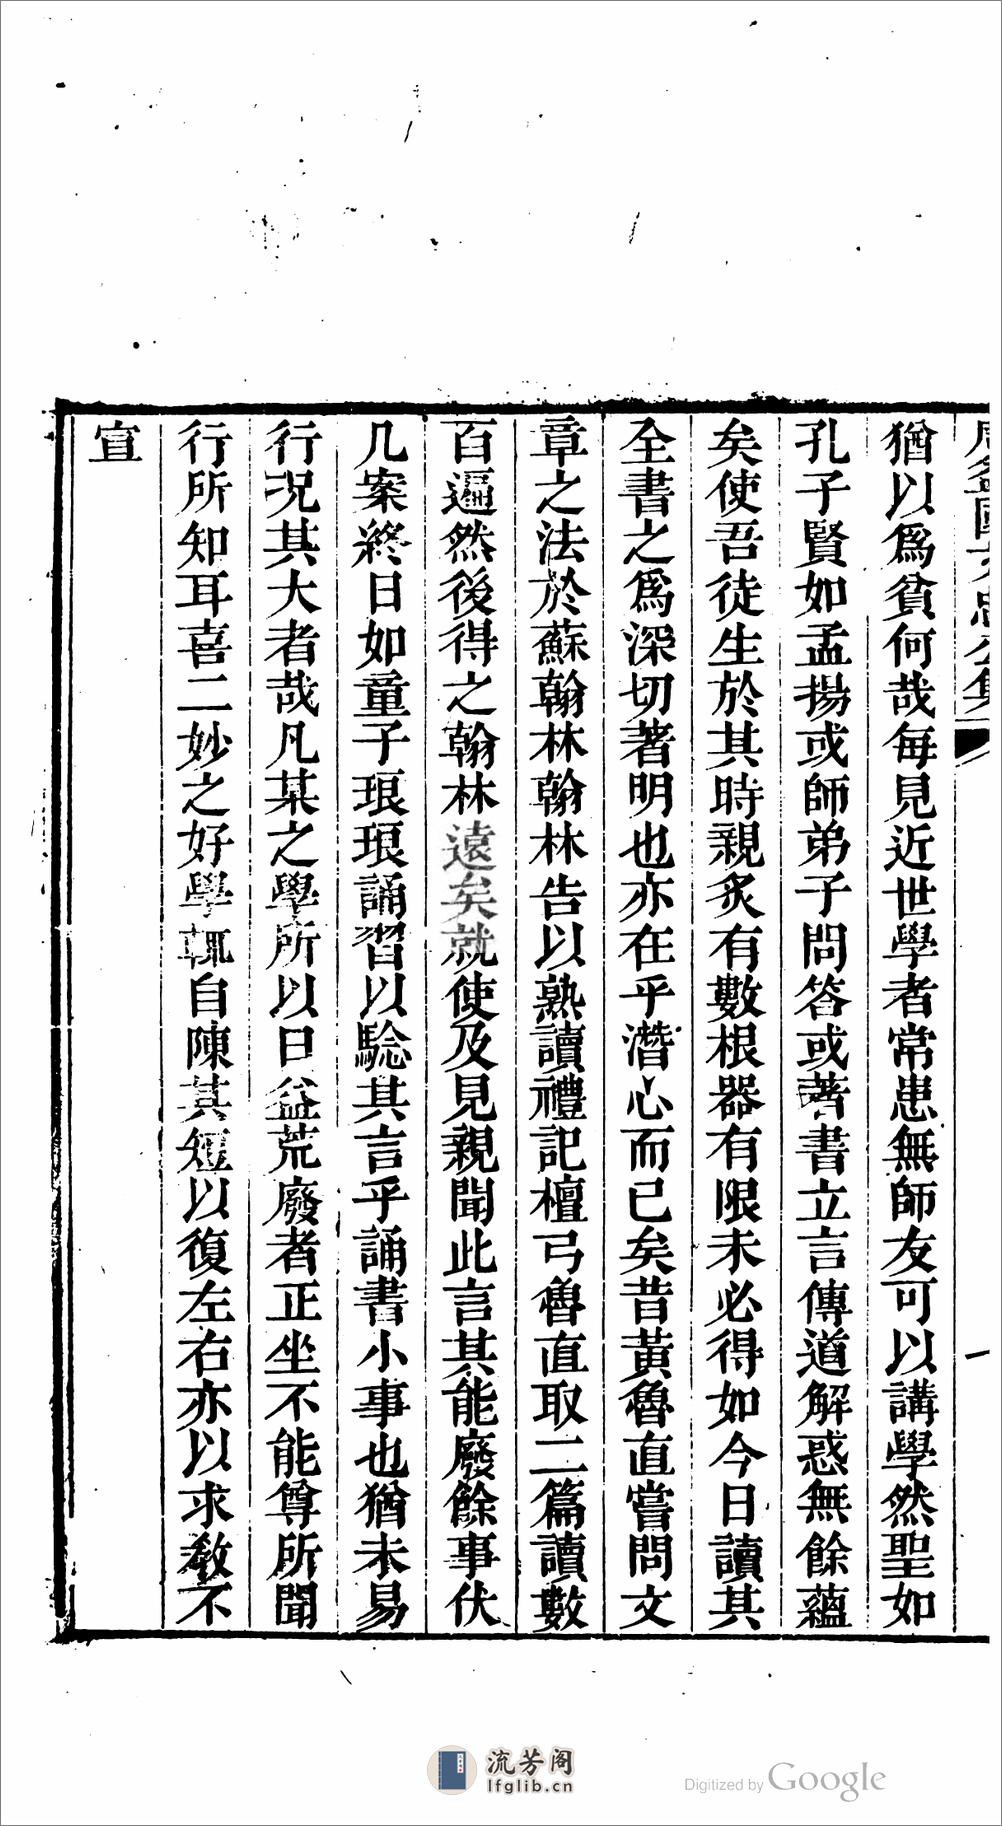 周益國文忠公集
一
猶以爲貧何哉每見近世學者常患無師友可以講學然聖如
孔子賢如孟揚或師弟子問答或著書立言傳道解惑無餘蘊
矣使吾徒生於其時親炙有數根器有限未必得如今日讀其
全書之爲深切著明也亦在乎潛心而已矣昔黃魯直嘗問文
章之法於蘇翰林翰林告以熟讀禮記檀弓魯直取二篇讀數
百遍然後得之翰林遠矣就使及見親聞此言其能廢餘事伏
几案終日如童子琅琅誦習以騐其言乎誦書小事也猶未易
行況其大者哉凡某之學所以日益荒廢者正坐不能尊所聞
行所知耳喜二妙之好學輒自陳其短以復左右亦以求教不
宣
流芳阁
lfglib.cn
Digitized by Google